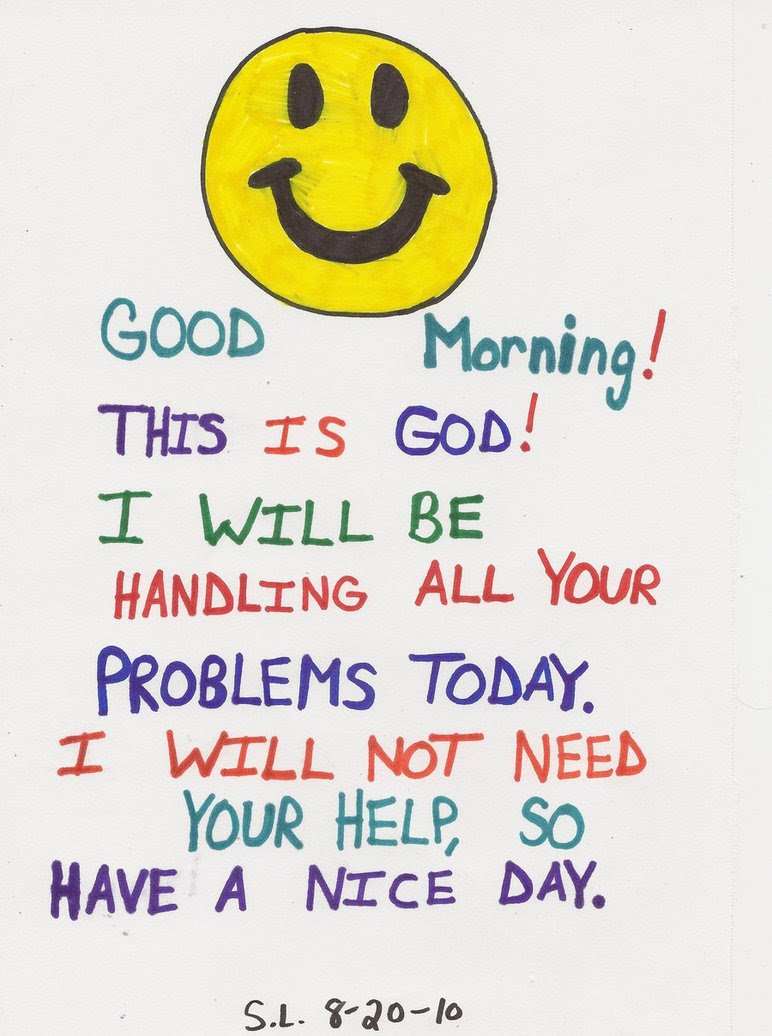 GOOD Morning!
THIS IS GOD!
I WILL BE
HANDLING ALL YOUR
PROBLEMS TODAY.
I WILL NOT NEED
YOUR HELP, SO
HAVE A NICE DAY.
S.L. 8-20-10